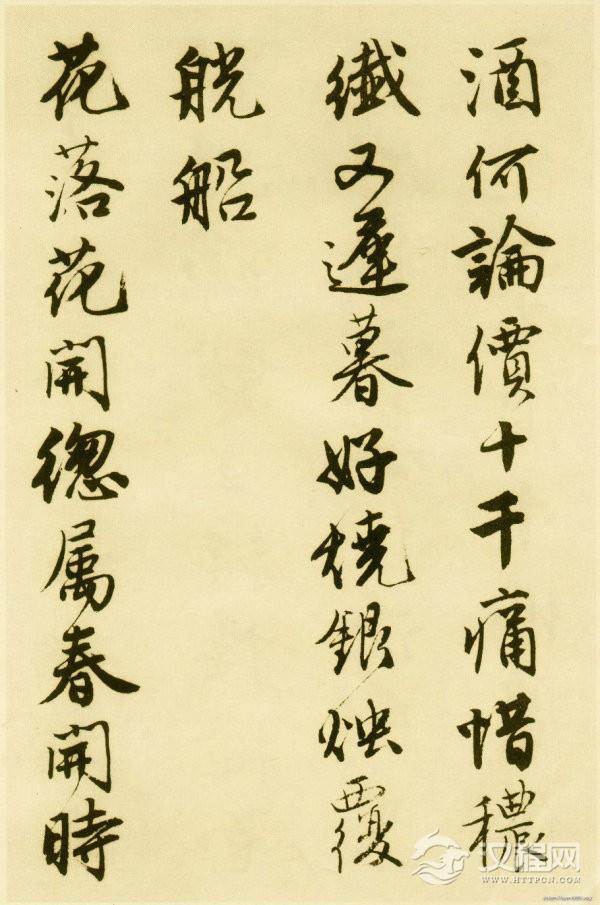 酒何論價十千痛惜穠
纖又遲暮好燒銀燭覆
觥船
花落花開總屬春開時
汉程网
WWW.HTTPCN.COM